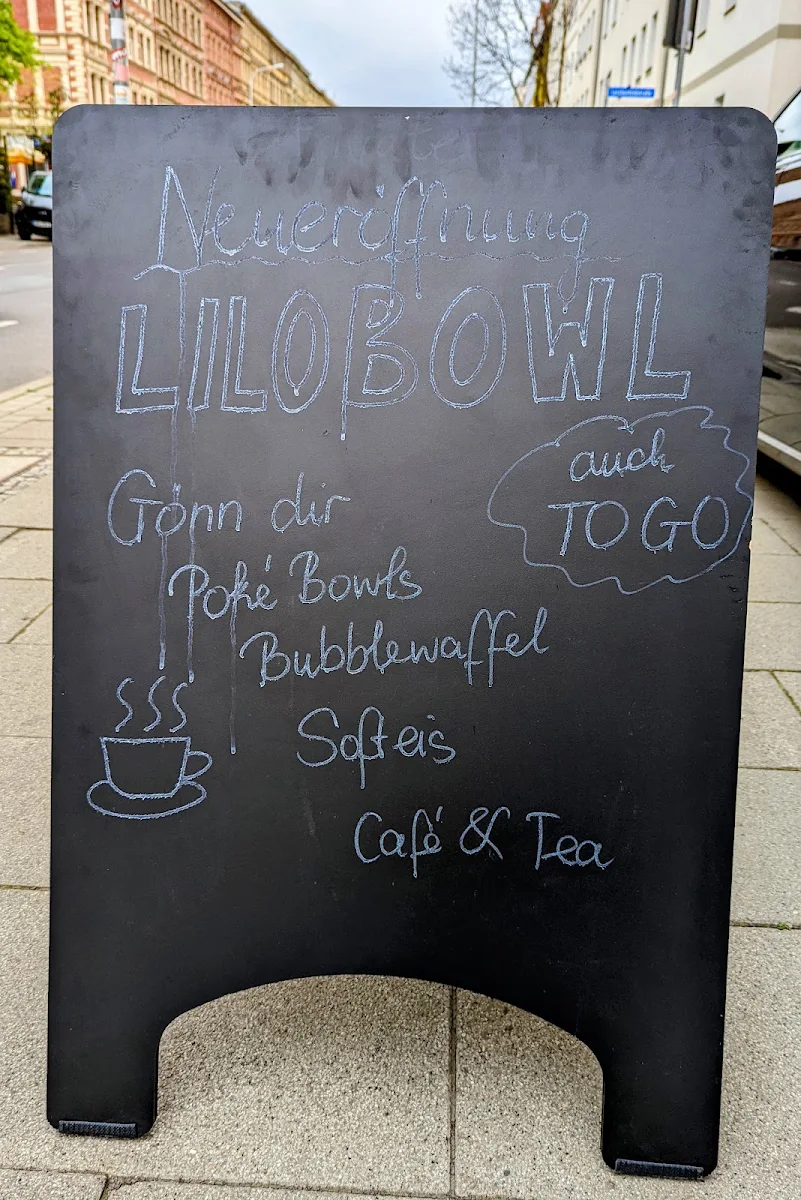 Neueröffnung
LILOBOWL
auch
TO GO
Gönn dir
Poké Bowls
Bubblewaffel
Softeis
Café & Tea